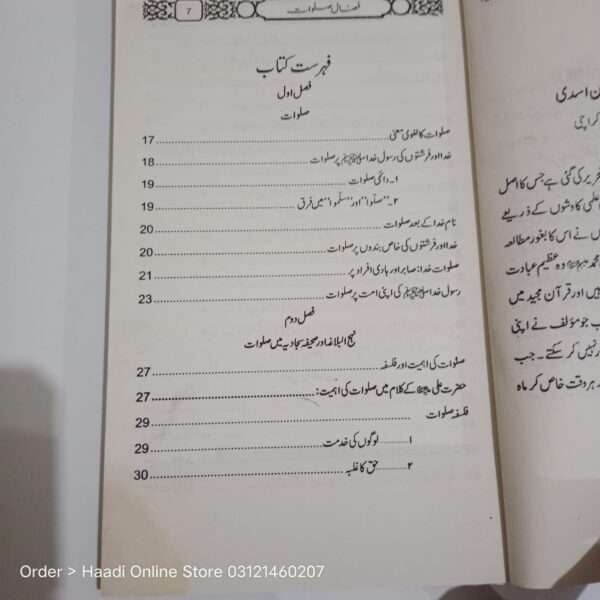 7
فضائل صلوات
فہرست کتاب
فصل اول
صلوات
صلوات کا لغوی معنی ........ 17
خدا اور فرشتوں کی رسول خدا ﷺ پر صلوات ........ 18
۱۔ دائمی صلوات ........ 19
۲۔ "صلّوا" اور "سلّموا" میں فرق ........ 19
نام خدا کے بعد صلوات ........ 20
خدا اور فرشتوں کی خاص بندوں پر صلوات ........ 20
صلوات خدا: صابر اور ہادی افراد پر ........ 21
رسول خدا ﷺ کی اپنی امت پر صلوات ........ 23
فصل دوم
نہج البلاغہ اور صحیفہ سجادیہ میں صلوات
صلوات کی اہمیت اور فلسفہ ........ 27
حضرت علی علیہ السلام کے کلام میں صلوات کی اہمیت: ........ 27
فلسفہ صلوات ........ 29
۱ ........ لوگوں کی خدمت ........ 29
۲ ........ حق کا غلبہ ........ 30
ن اسدی
کراچی
تحریر کی گئی ہے جس کا اصل
علمی کاوشوں کے ذریعے
نے اس کا بغور مطالعہ
محمد ﷺ وہ عظیم عبادت
ہیں اور قرآن مجید میں
ب جو مؤلف نے اپنی
نہیں کر سکتے۔ جب
ہر وقت خاص کر ماہ
Order > Haadi Online Store 03121460207